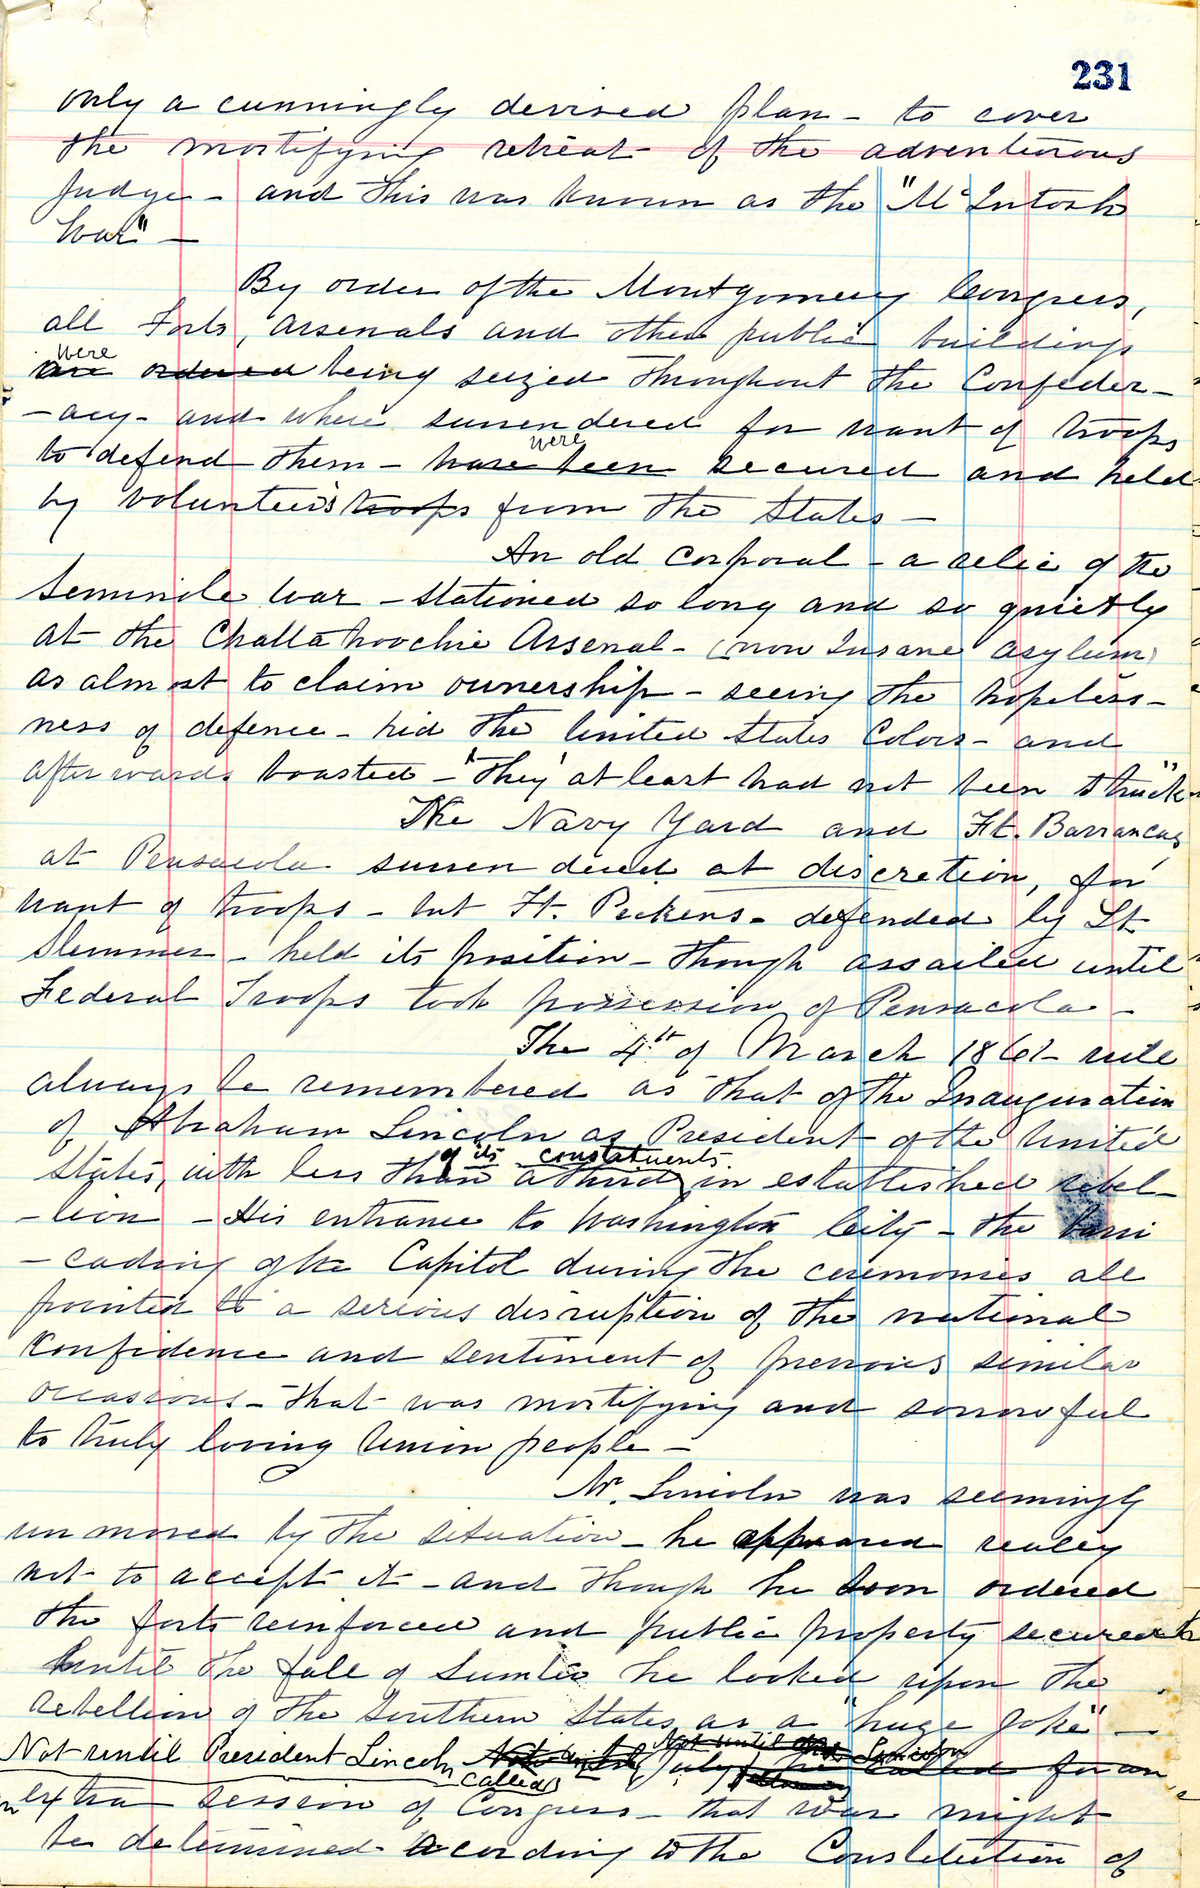 231
only a cunningly devised plan - to cover
the mortifying retreat of the adventurous
Judge - and this was known as the "McIntosh
War" -
By order of the Montgomery Congress,
all Forts, Arsenals and other public buildings
were
are ordered being seized throughout the Confeder-
-acy - and where surrendered for want of troops
were
to defend them - have been secured and held
by volunteers troops from the States -
An old corporal - a relic of the
Seminole War - stationed so long and so quietly
at the Chattahoochie Arsenal - (now Insane Asylum)
as almost to claim ownership - seeing the hopeless-
ness of defence - hid the United States Colors - and
afterwards boasted - "they at least had not been struck"
The Navy Yard and Ft. Barrancas
at Pensacola surrendered at discretion, for
want of troops - but Ft. Pickens - defended by Lt
Slemmer - held its position - though assailed until
Federal Troops took possession of Pensacola -
The 4th of March 1861 - will
always be remembered as that of the Inauguration
of Abraham Lincoln as President of the United
of its constatuents
States, with less than a third in established rebel-
-lion - His entrance to Washington City - the barri
-cading of the Capitol during the ceremonies all
pointed to a serious disruption of the national
Confidence and sentiment of previous similar
occasions - that was mortifying and sorrowful
to truly loving Union people -
Mr. Lincoln was seemingly
unmoved by the situation - he appeared really
not to accept it - and though he soon ordered
the forts reinforced and public property secured
until the fall of Sumter he looked upon the
rebellion of the Southern States as a "huge joke" -
Not until Lincoln
Not until President Lincoln July called for an
called
extra session of Congress - that war might
be determined according to the Constitution of